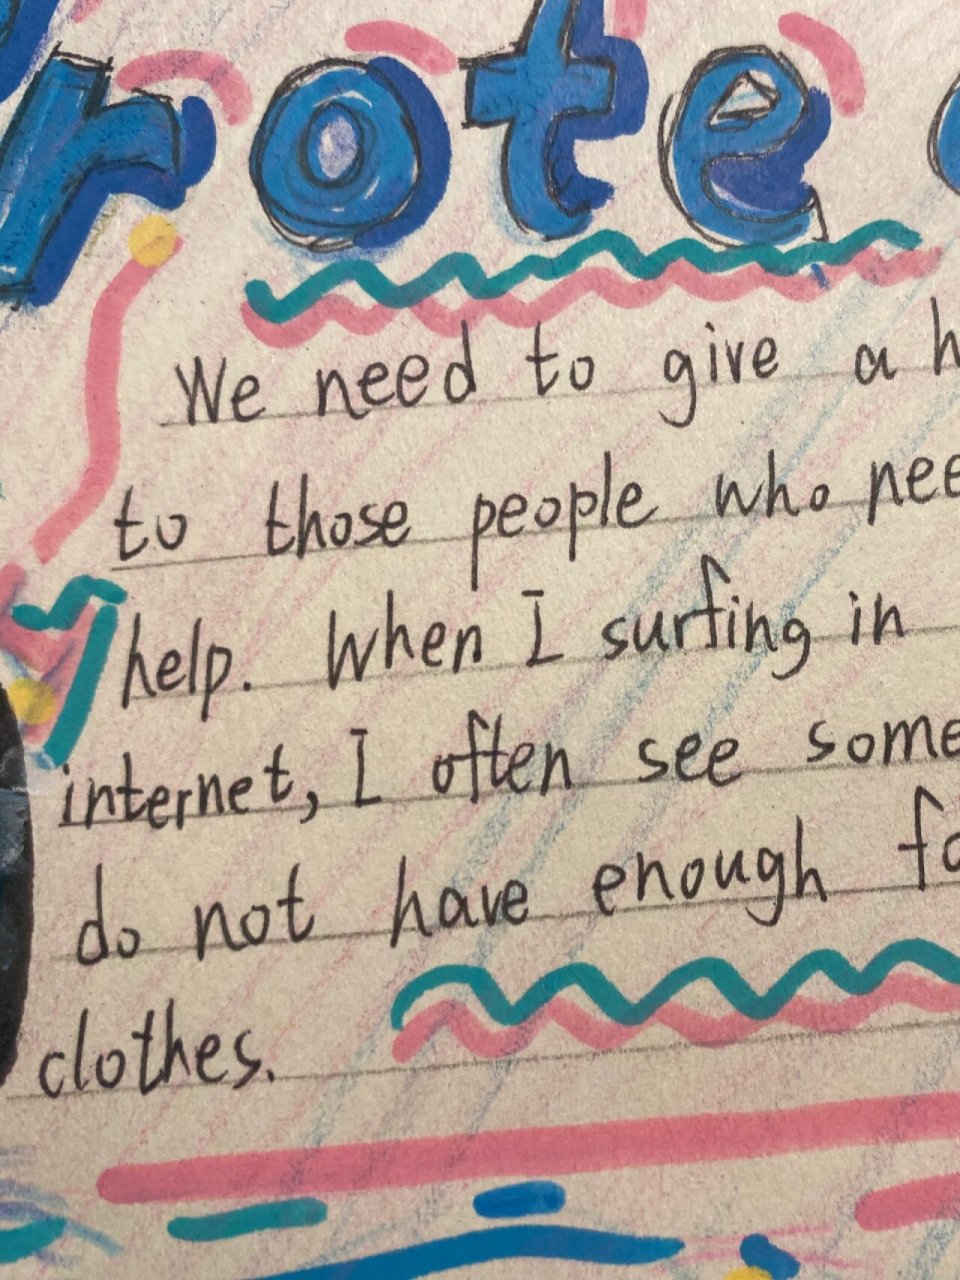 rote
We need to give a h
to those people who nee
help. When I surfing in
internet, I often see some
do not have enough fo
clothes.